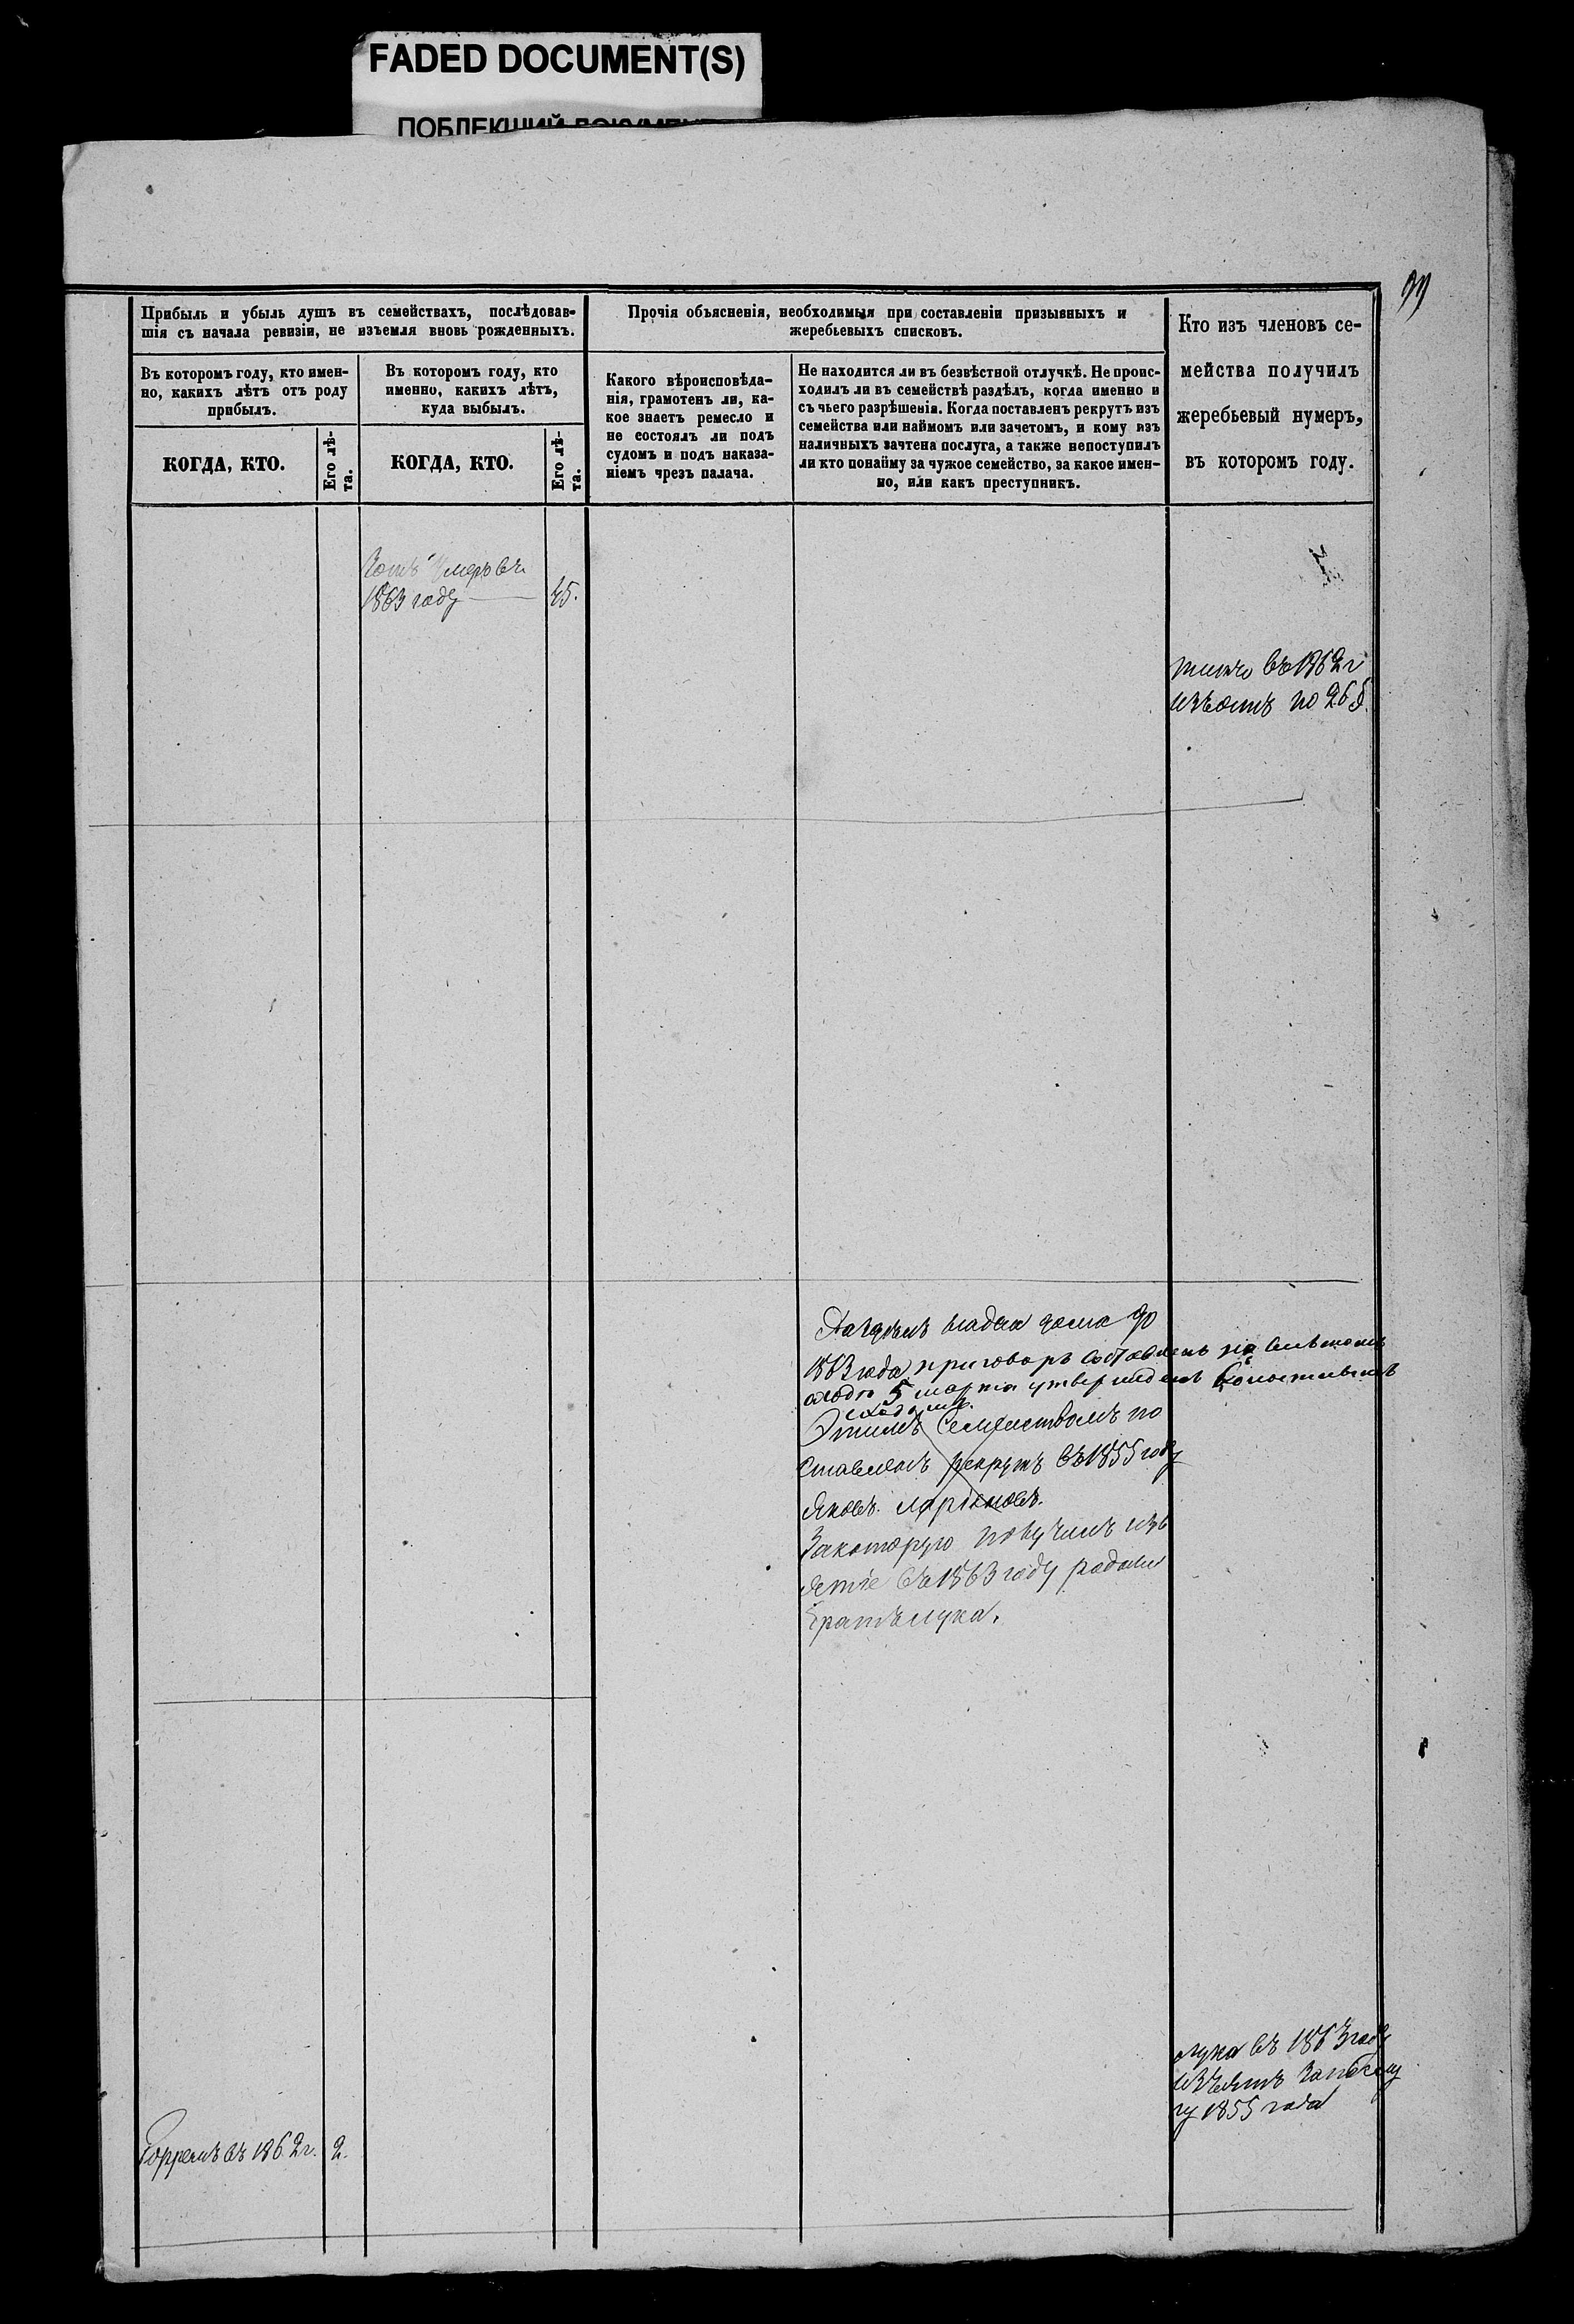 FADED DOCUMENT(S)
99
Прибыль и убыль душъ въ семействахъ, послѣдовав-
шія съ начала ревизіи, не изъемля вновь рожденныхъ.
Въ которомъ году, кто имен-
но, какихъ лѣтъ отъ роду
прибылъ.
КОГДА, КТО.
Его лѣ-
та.
Въ которомъ году, кто
именно, какихъ лѣтъ,
куда выбылъ.
КОГДА, КТО.
Его лѣ-
та.
Прочія объясненія, необходимыя при составленіи призывныхъ и
жеребьевыхъ списковъ.
Какого вѣроисповѣда-
нія, грамотенъ ли, ка-
кое знаетъ ремесло и
не состоялъ ли подъ
судомъ и подъ наказа-
ніемъ чрезъ палача.
Не находится ли въ безвѣстной отлучкѣ. Не проис-
ходилъ ли въ семействѣ раздѣлъ, когда именно и
съ чьего разрѣшенія. Когда поставленъ рекрутъ изъ
семейства или наймомъ или зачетомъ, и кому изъ
наличныхъ зачтена послуга, а также непоступилъ
ли кто понайму за чужое семейство, за какое имен-
но, или какъ преступникъ.
Кто изъ членовъ се-
мейства получилъ
жеребьевый нумеръ,
въ которомъ году.
умеръ въ
1863 году 45.
въ 1862 г
изъятъ по 26
1863 года приговоръ составленъ на
5 марта утвержденъ
Этимъ Семействомъ по
ставленъ рекрутъ въ 1855 году
Яковъ Ларіоновъ.
Закоторую получилъ изъ
ятіе въ 1863 году родной
братъ Лука.
Лука въ 1863 году
изъятъ
1855 года
въ 1862 г. 2.